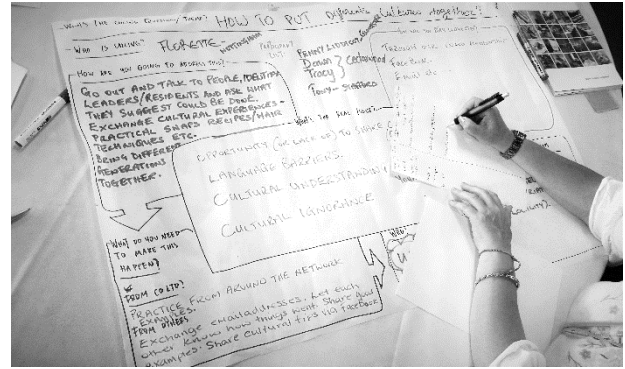 WHAT'S THE CALLING QUESTION/THEME? HOW TO PUT Different Cultures together?
WHO IS CALLING? FLORETTE - NOTTINGHAM
PARTICIPANT LIST:
PENNY LIDDICOTT
Dawn
Tracy
Tony - STAFFORD
HOW ARE YOU GOING TO ADDRESS THIS?
GO OUT AND TALK TO PEOPLE/
LEADERS/RESIDENTS AND ASK WHAT
THEY SUGGEST COULD BE DONE.
EXCHANGE CULTURAL EXPERIENCES -
PRACTICAL SWAPS RECIPES/HAIR
TECHNIQUES ETC.
BRING DIFFERENT
GENERATIONS
TOGETHER.
THROUGH OUR
FACEBOOK
EMAIL etc
WHAT'S THE REAL ISSUE?
OPPORTUNITY (OR LACK OF) TO SHARE
LANGUAGE BARRIERS.
CULTURAL UNDERSTANDING
CULTURAL IGNORANCE
WHAT DO YOU NEED
TO MAKE THIS
HAPPEN?
FROM CO LTD?
PRACTICE FROM AROUND THE NETWORK
EXAMPLES.
FROM OTHERS
Exchange email addresses. Let each
other know how things went. Share
examples. Share cultural tips via facebook